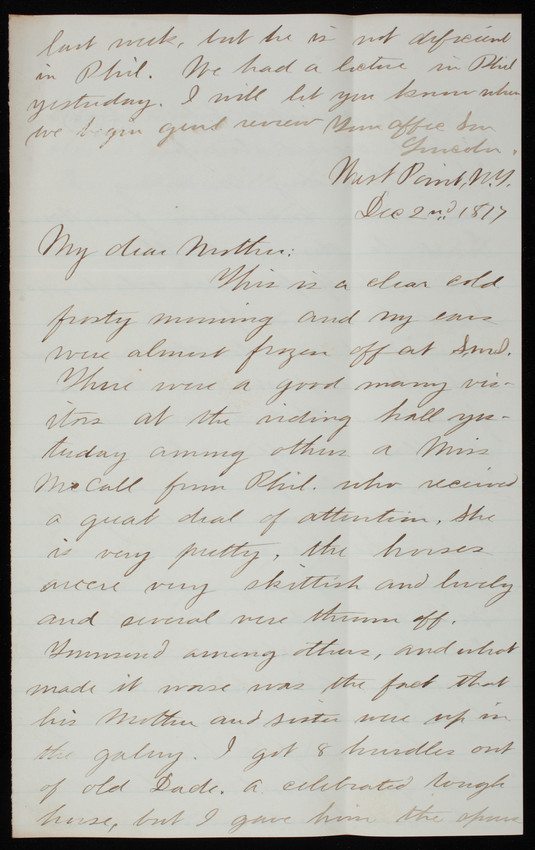 last week, but he is not deficient
in Phil. We had a lecture in Phil
yesterday. I will let you know when
we begin genl review Your affec Son
Lincoln.
West Point, N.Y.
Dec 2nd, 1817
My dear Mother:
This is a clear cold
frosty morning and my ears
were almost frozen off at
There were a good many vis-
itors at the riding hall yes-
terday among others a Miss
McCall from Phil. who received
a great deal of attention. She
is very pretty, the horses
were very skittish and lively
and several were thrown off.
Townsend among others, and what
made it worse was the fact that
his Mother and sister were up in
the galery. I got 8 hurdles out
of old Dade. a celebrated rough
horse, but I gave him the spurs